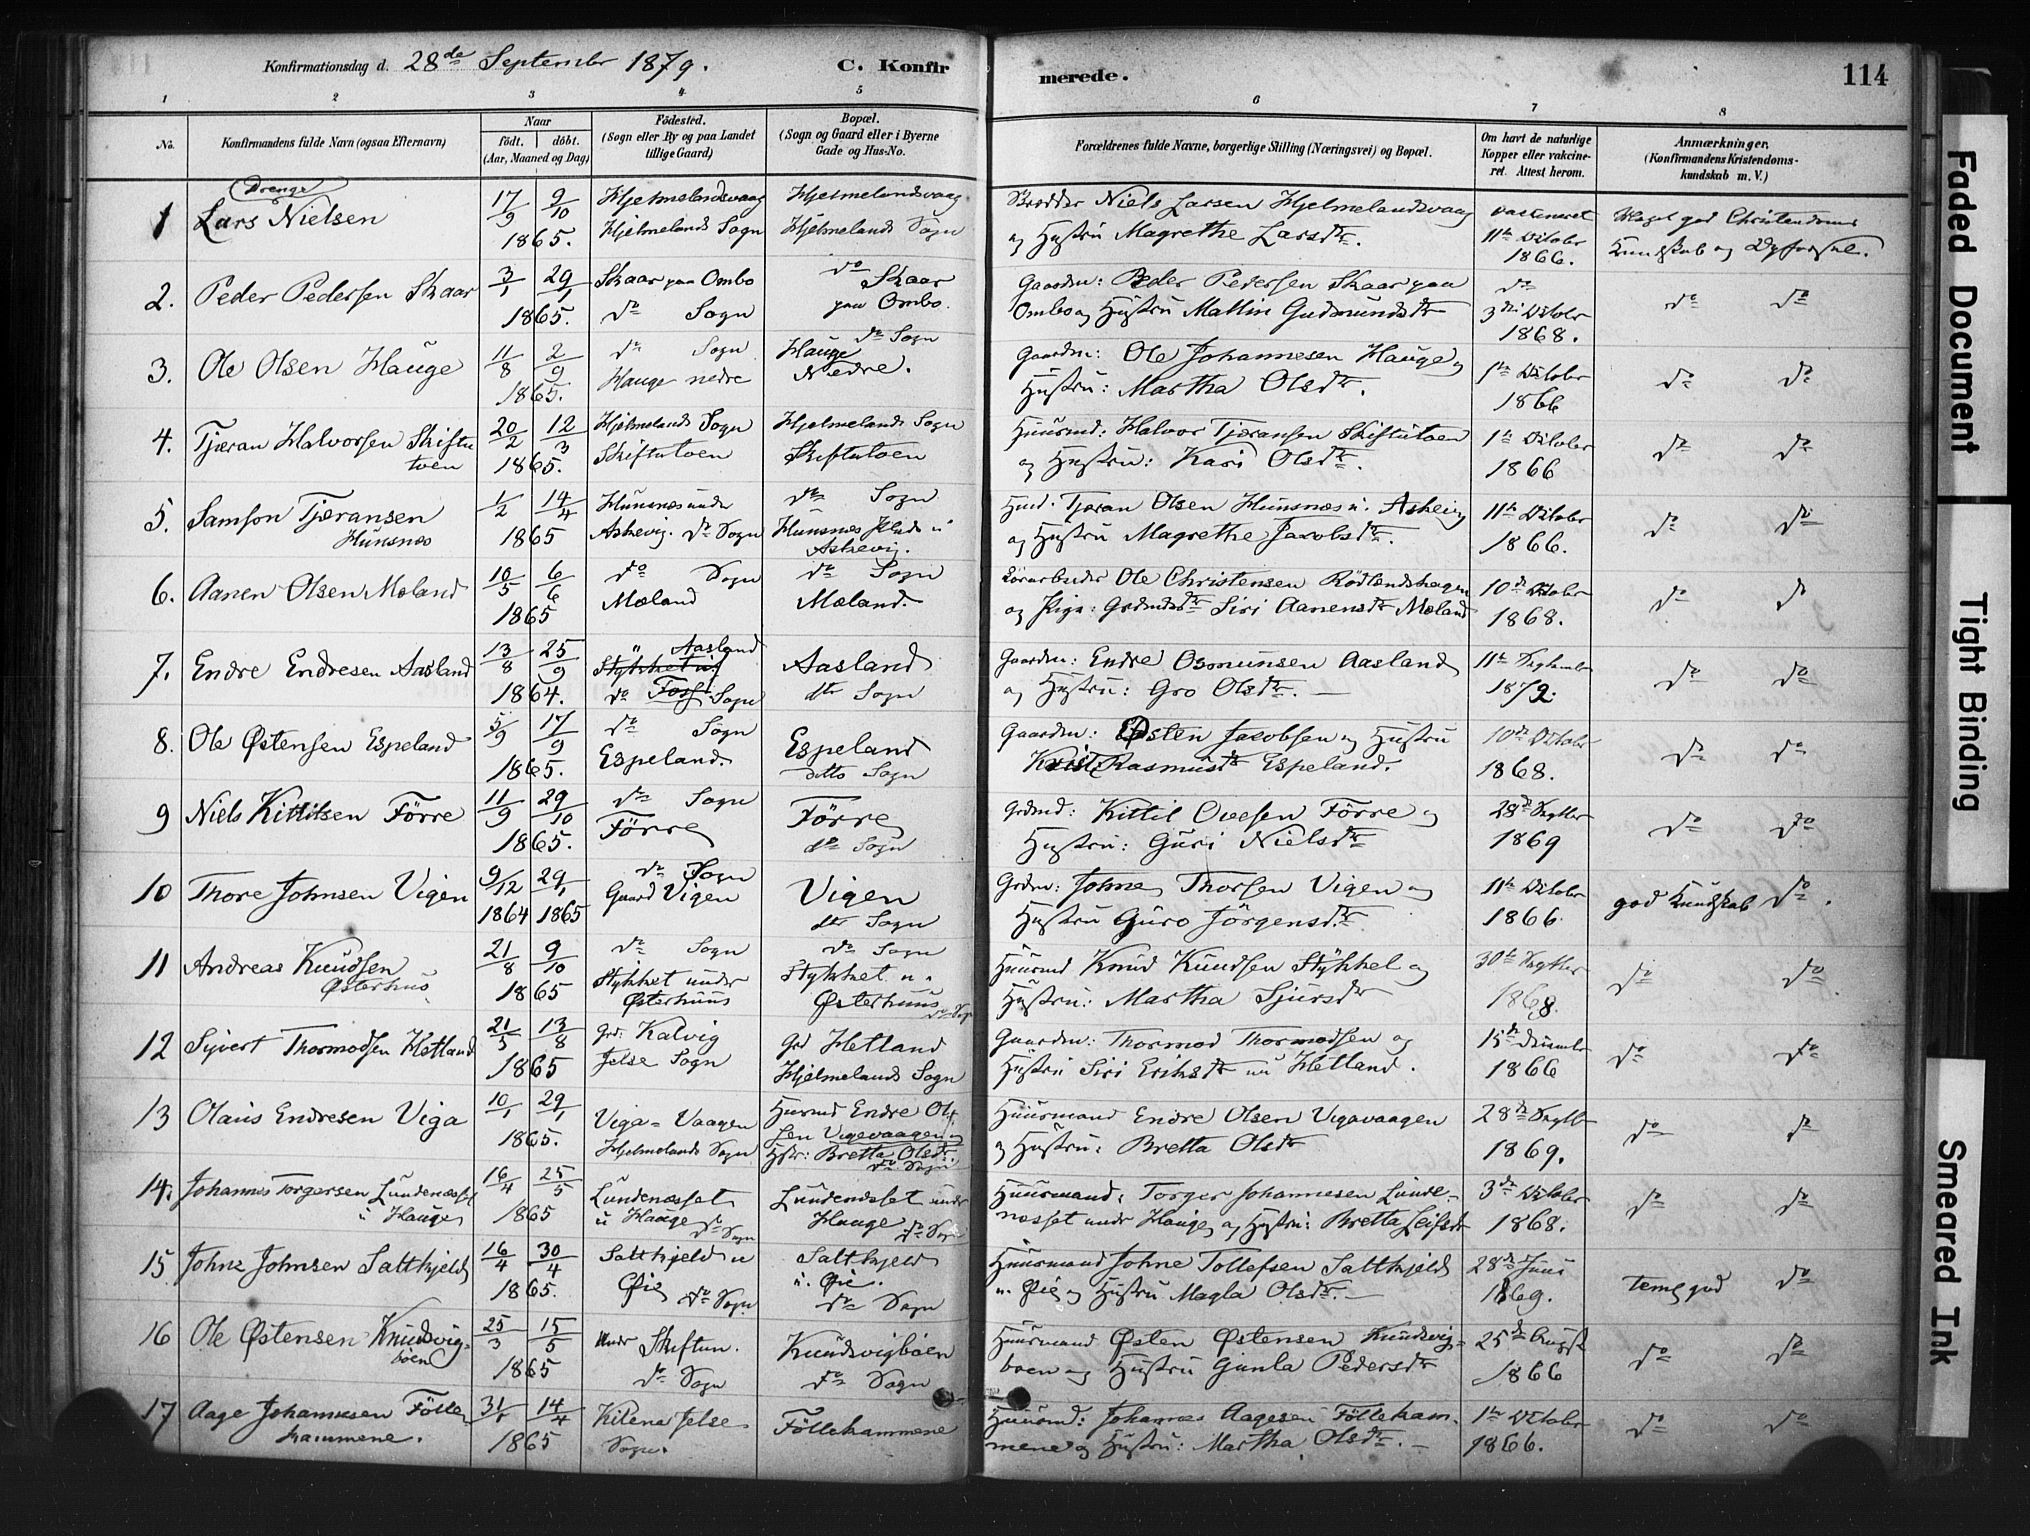 Konfirmationsdag d. 28de September 1879. C. Konfirmerede. 114
1 2 3 4 5 6 7 8
No. Konfirmandens fulde Navn (ogsaa Efternavn) Naar födt. döbt. (Aar, Maaned og Dag) Födested. (Sogn eller By og paa Landet tillige Gaard) Bopæl. (Sogn og Gaard eller i Byerne Gade og Hus-No. Forældrenes fulde Navne, borgerlige Stilling (Næringsvei) og Bopæl. Om havt de naturlige Kopper eller vakcineret. Attest herom. Anmærkninger, (Konfirmandens Kristendomskundskab m. V.)
Drenge
1 Lars Nielsen 17/9 9/10 1865. Hjelmelandsvaag Hjelmelands Sogn Hjelmelandsvaag Hjelmelands Sogn Niels Larsen Hjelmelandsvaag og Hustru Magrethe Larsdtr. vaccineret 11te Oktober 1866. Meget god Christendoms Kundskab og Opførsel.
2. Peder Pedersen Skaar 3/1 29/1 1865. Skaar paa Ombo do Sogn do Skaar paa Ombo. do Sogn Gaardm: Peder Pedersen Skaar paa Ombo og Hustru Mallin Gudmundsdtr do 3die Oktober 1868. do do
3. Ole Olsen Hauge 11/8 2/9 1865. do Sogn Hauge nedre Hauge Nedre. Gaardm: Ole Johannesen Hauge og Hustru: Martha Olsdtr. 1ste Oktober 1866 do do
4. Tjæran Halvorsen Skiftutoen 20/2 12/3 1865. Hjelmelands Sogn Skiftutoen Hjelmelands Sogn Skiftutoen Huusmd: Halvor Tjæransen Skiftutoen og Hustru: Kari Olsdtr. 1ste Oktober 1866 do do
5. Samson Tjæransen Hunsnæs 1/2 14/4 1865 Hunsnæs under Askevig. do Sogn do Sogn Hunsnæs u Askevig. Husmd. Tjæran Olsen Hunsnæs u. Askevig og Hustru Magrethe Jacobsdtr. 11te Oktober 1866. do do
6. Aanen Olsen Mæland 10/5 6/6 1865 do Sogn Mæland do Sogn Mæland. Ole Christensen Rödlandshagen og Pige: Siri Aanensdtr Mæland 10de Oktober 1868. do do
7. Endre Endresen Aasland 13/8 25/9 1864. " Aasland do Sogn Aasland do Sogn Gaardm: Endre Osmunsen Aasland og Hustru: Gro Olsdtr. 11te September 1872. do do
8. Ole Østensen Espeland 5/9 17/9 1865. do Sogn Espeland. Espeland ditto Sogn Gaardm: Østen Jacobsen og Hustru Rasmusdtr Espeland. 10de Oktober 1868. do do
9 Niels Kittilsen Förre 11/9 29/10 1865. do Sogn Förre Förre do Sogn Grdmd: Kittil Ovesen Förre og Hustru: Guri Nielsdtr 28de Septbr 1869 do do
10 Thore Johnsen Vigen 9/12 1864 29/1 1865 do Sogn Gaard Vigen Vigen do Sogn Grdm: Johne Thorsen Vigen og Hustru Guro Jörgensdtr 11te Oktober 1866. god Kundskab do.
11 Andreas Knudsen Østerhus 21/8 9/10 1865 do Sogn Stykket under Østerhuus do Sogn Stykket u. Østerhuus do Sogn Huusmd Knud Knudsen Stykket og Hustru: Martha Sjursdtr 30te Septbr 1868. do do
12 Sivert Thormodsen Hetland 21/5 13/8 1865 Grd. Kalvig Jelse Sogn Grd Hetland Hjelmelands Sogn Gaardm: Thormod Thormodsen og Hustru Siri Eriksdtr Hetland. 15de December 1866 do do
13 Olaus Endresen Viga 10/1 29/1 1865. Viga-Vaagen Hjelmelands Sogn Husmd Endre Olsen Vigevaagen og Hstr: Bretta Olsdtr. do Sogn Huusmand Endre Olsen Vigavaagen og Hustru: Bretta Olsdtr 28de Septbr 1869. do do
14. Johannes Torgersen Lundenæsset u Hauge 16/4 25/5 1865 Lundenæsset u Hauge do Sogn Lundenæsset under Hauge do Sogn Huusmand: Torger Johannesen Lundenæsset under Hauge og Hustru: Bretta Leifsdtr 3die Oktober 1868. do do
15 Johne Johnsen Saltkjeld 16/4 30/4 1865. Saltkjeld u Øie do Sogn Saltkjeld u. Øie. do Sogn Huusmand Johne Tollefsen Saltkjeld u. Øie og Hustru Magla Olsdtr. 28de Juni 1869. temg god do
16 Ole Østensen Knudsvigböen 25/3 15/5 1865 under Skiftun. do Sogn Knudsvigböen do Sogn Huusmand Østen Østensen Knudsvigboen og Hustru Gunla Pedersdtr 25de August 1866 do do
17 Aage Johannesen Föllehammene. 31/1 14/4 1865 Kilena Jelse Sogn. Föllehammene Huusmd: Johannes Aagesen Föllehammene og Hustru: Martha Olsdtr. 1ste Oktober 1866. do do
Faded Document
Tight Binding
Smeared Ink